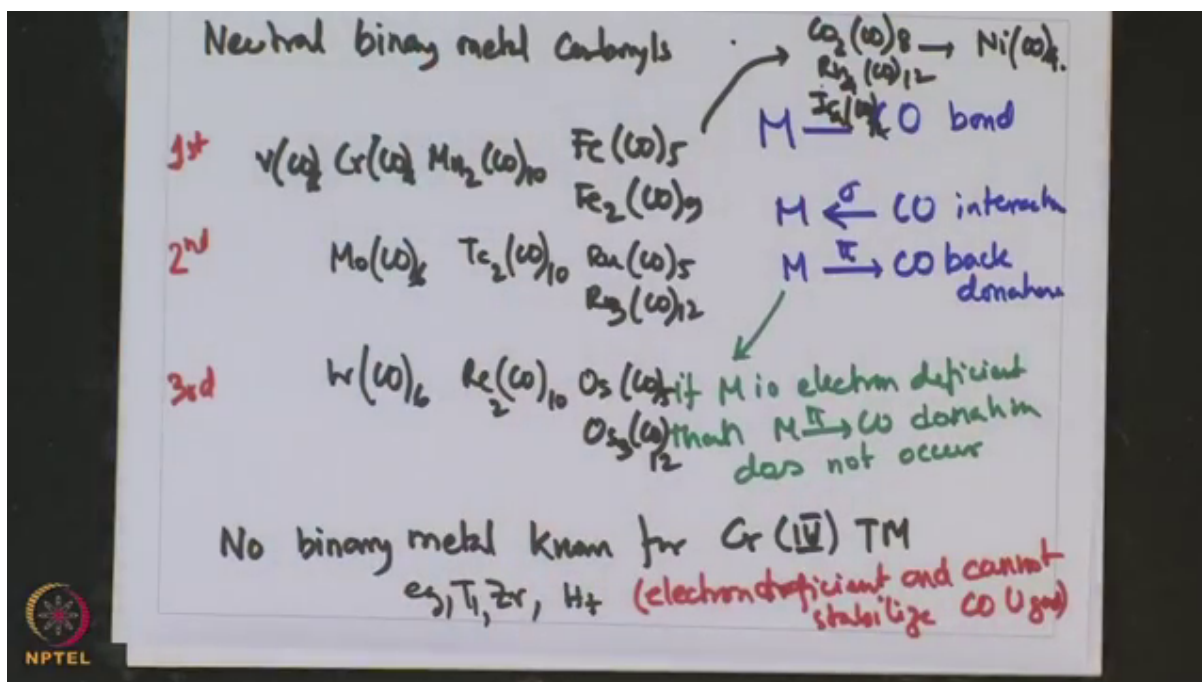 Neutral binary metal Carbonyls
Co2(CO)8 → Ni(CO)4.
Rh4(CO)12
Ir4(CO)12
M — CO bond
1st V(CO)6 Cr(CO)6 Mn2(CO)10 Fe(CO)5
Fe2(CO)9
M ←σ CO interactn
2nd Mo(CO)6 Tc2(CO)10 Ru(CO)5
M π→ CO back
donation
Ru3(CO)12
3rd W(CO)6 Re2(CO)10 Os(CO)5
if M is electron deficient
Os3(CO)12
than M π→ CO donation
does not occur
No binary metal known for Gr (IV) TM
eg, Ti, Zr, Hf (electron deficient and cannot
stabilize CO ligand)
NPTEL